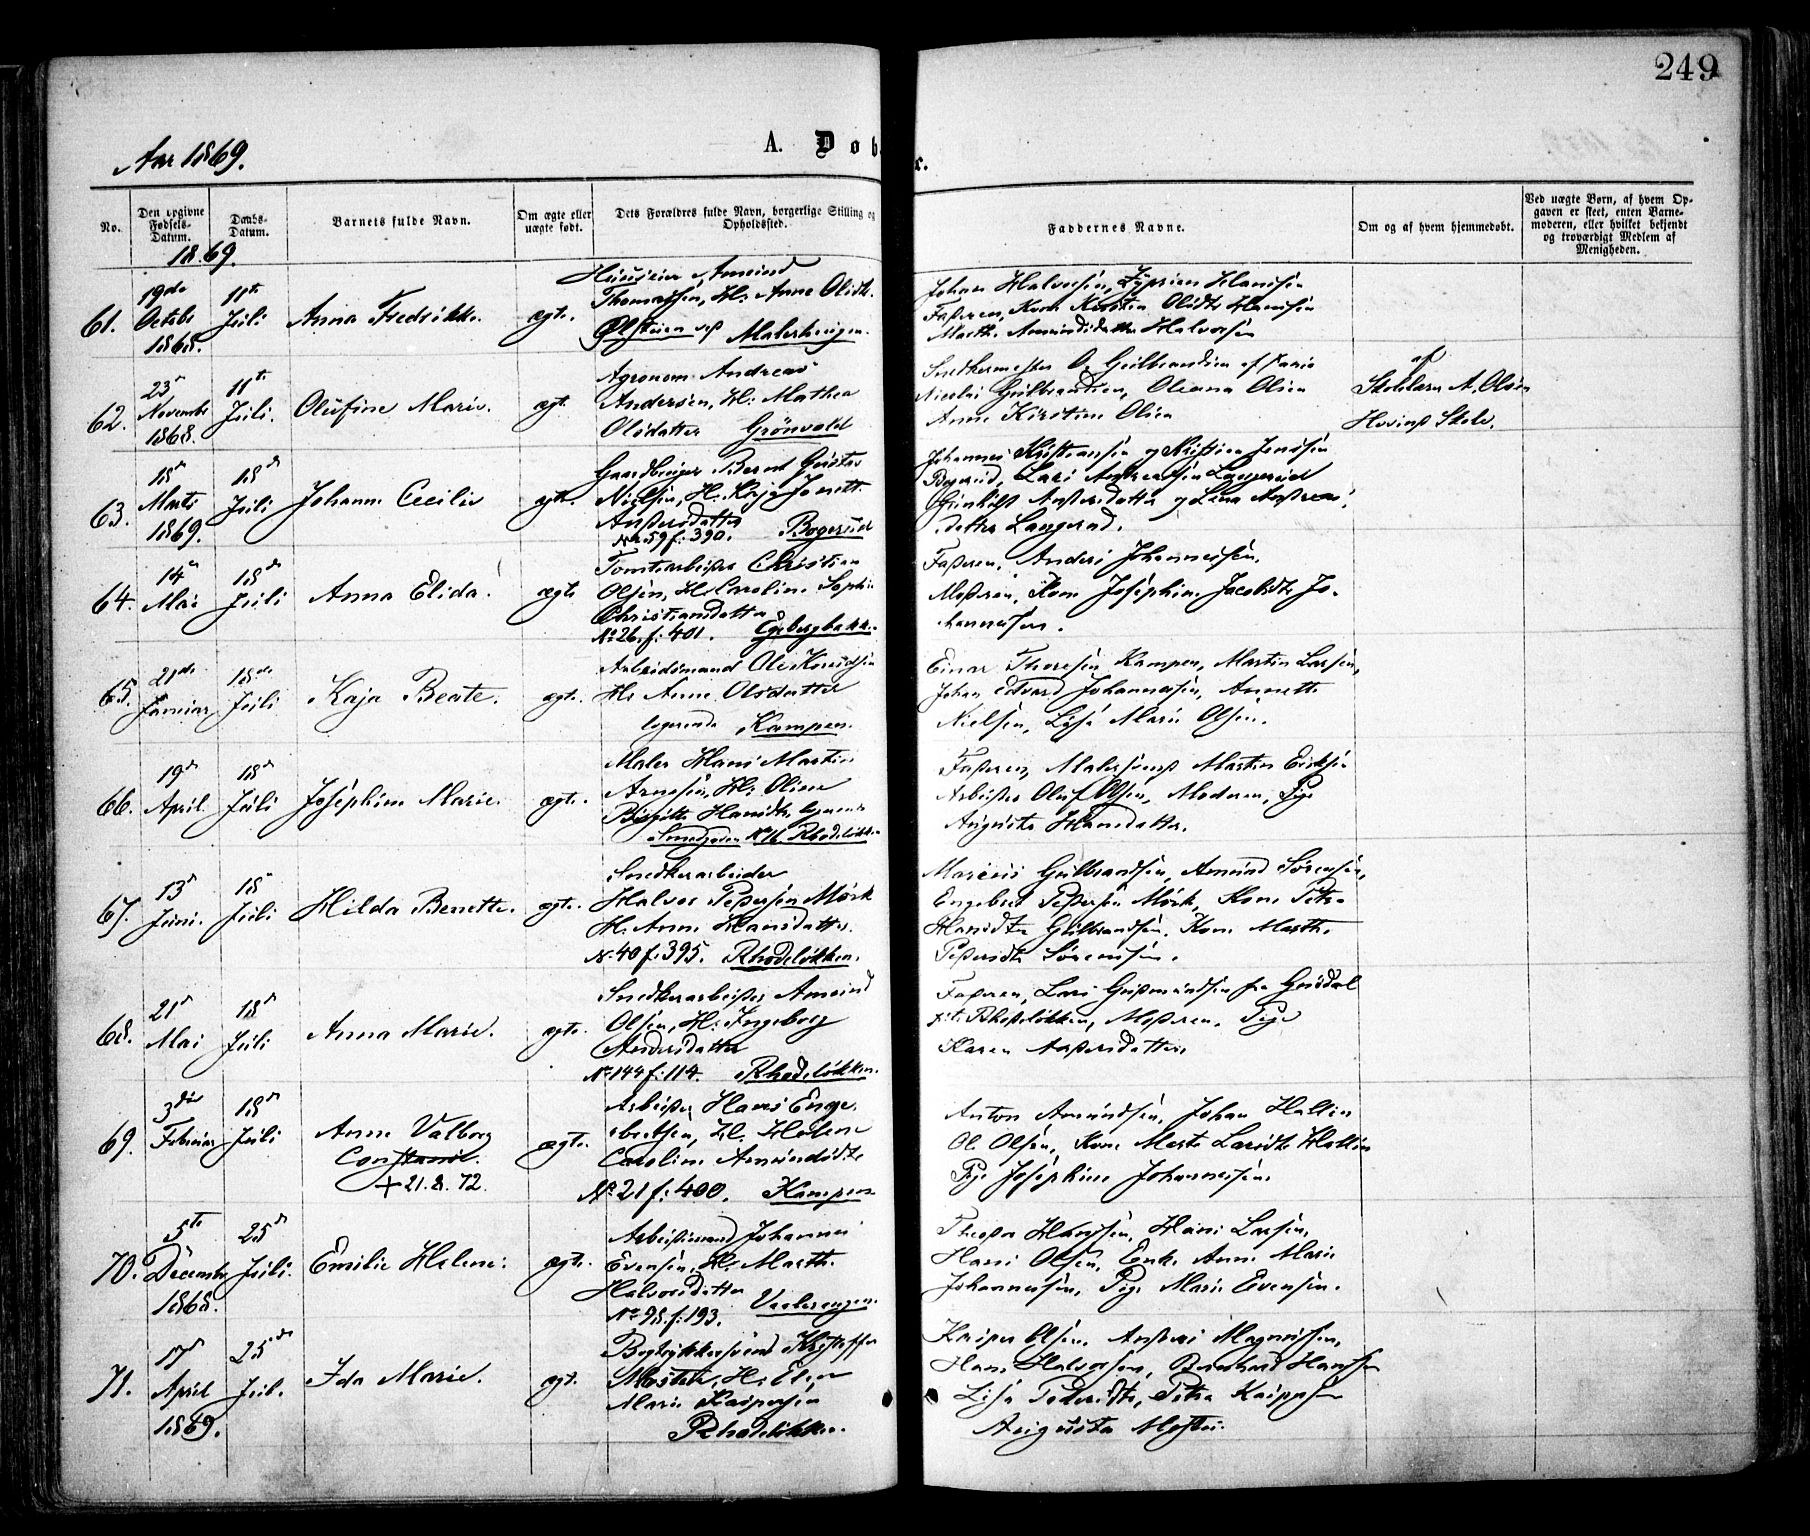 249
Aar 1869.
A. Døbte.
No.
Den opgivne Fødsels-Datum.
Daabs-Datum.
Barnets fulde Navn.
Om ægte eller uægte født.
Dets Forældres fulde Navn, borgerlige Stilling og Opholdssted.
Faddernes Navne.
Om og af hvem hjemmedøbt.
Ved uægte Børn, af hvem Op-
gaven er skeet, enten Barne-
moderen, eller hvilket bekjendt
og troværdigt Medlem af
Menigheden.
1869.
61.
19de
Octobr
1868.
11te
Juli
Anna Fredrikke.
ægte.
Huuseier, Amund
Thomassen, H: Anne Olsdtr.
Malerhaugen.
Johan Halvorsen, Hansen
Faderen, Kone Olsdtr Hansen
Marthe Amundsdatter Halvorsen
62.
23d
Novembr
1868.
11te
Juli.
Olufine Marie.
ægte.
Agronom Andreas
Andersen, H: Mathea
Olsdatter Grönvold
Snedkermester O. Gulbrandsen
Nicolai Gulbrandsen, Oleana Olsen
Anne Kirstine Olsen
af
Skolelærer A. Olsen
Hovinds Skole.
63.
18d
Marts
1869.
18d
Juli
Johanne Cecilie
ægte.
Gaardbruger Bernt Gustav
Nielsen, H. Kaja Jonette
Andersdatter
No 59 f: 390. Bogerud
Johannes Kristiansen og Kristian Jensen
Bogerud, Lars Andreassen Langerud
Gunhild Andersdatter og Lena Anders
datter Langerud.
64.
14d
Mai
18d
Juli
Anna Elida.
ægte
Tomtearbeider Christian
Olsen, H: Caroline Sophie
Christiansdatter
No 26. f: 401. Egebergbakke.
Faderen, Anders Johannessen.
Moderen, Kone Josephine Jacobsdtr Jo-
hannessen.
65.
21de
Januar
18de
Juli
Kaja Beate.
ægte.
Arbeidsmand Ole Knudsen
H: Anne Olsdatter
logerende Kampen.
Einar Thoresen Kampen, Martin Larsen,
Johan Edvard Johannessen, Annette
Nielsen, Lise Marie Olsen.
66.
19d
April.
18d
Juli
Josephine Marie.
ægte.
Maler Hans Martin
Arnesen, H: Oline
Birgitte Hansdtr,
Smedgaden No 16 Rhodeløkken
Faderen, Malersvend Martin Eriksen
Arbeider Oluf Olsen, Moderen, Pige
Augusta Hansdatter.
67.
13d
Juni.
18d
Juli
Hilda Bernette.
ægte.
Snedkerarbeider
Halvor Pedersen Mørk
H: Anne Hansdatter.
No 40 f: 395. Rhodeløkken.
Marcus Gulbrandsen, Amund Sørensen,
Engebret Pedersen Mørk, Kone Petra
Hansdtr Gulbrandsen. Kone Marthe
Pedersdtr Sørensen.
68.
21d
Mai
18d
Juli
Anna Marie.
ægte.
Snedkerarbeider Amund
Olsen, H: Ingeborg
Andersdatter
No 144 f: 114. Rhodeløkken.
Faderen, Lars Gudmundsen fra
Rhodeløkken, Moderen. Pige
Karen Andersdatter.
69.
3die
Februar
18d
Juli
Anne Valborg
Constance.
+ 21. 8. 72.
ægte.
Arbeider Hans Enge-
bretsen, H: Helene
Caroline Amundsdtr
No 21 f: 400. Kampen
Anton Amundsen, Johan Hallin
Ol. Olsen, Kone Marte Larsdtr Hallin
Pige Josephine Johannessen.
70.
5te
Decembr
1868.
25d
Juli.
Emilie Helene.
ægte.
Arbeidsmand Johannes
Evensen, H: Marthe
Halvorsdatter
No 98. f: 193. Vaalerengen.
Theodor Hansen, Hans Larsen,
Hans Olsen, Enke Anne Marie
Johannessen, Pige Marie Evensen.
71.
17d
April
1869.
25de
Juli.
Ida Marie.
ægte.
Bogtrykkersvend Kristoffer
H: Elen
Marie Kaspersen
Rhodeløkken.
Kasper Olsen. Anders Magnussen,
Hans Halvorsen, Bernhard Hansen
Lise Pedersdtr, Petra
Augusta